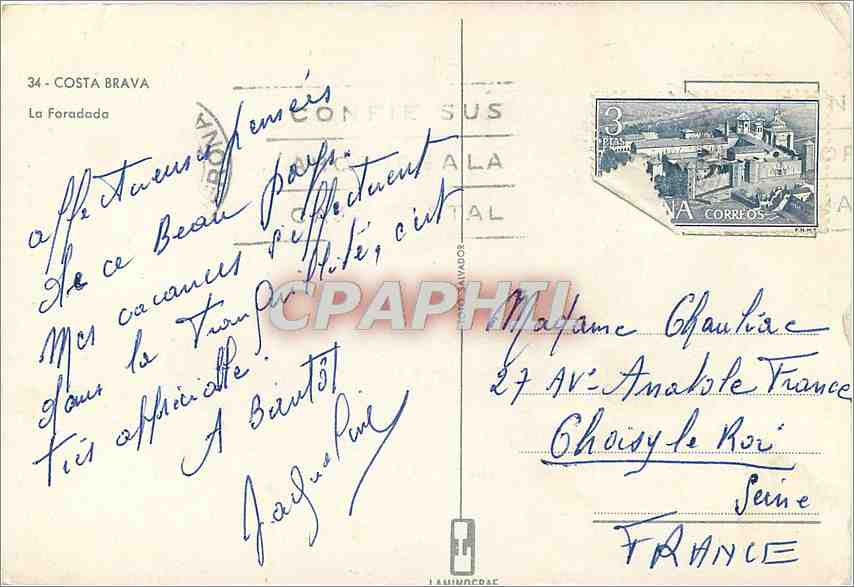 34 - COSTA BRAVA
La Foradada
CONFIE SUS
ALA
TAL
3
PTAS
NA CORREOS
F.N.M.T.
affectueuses pensées
de ce Beau pays.
Mes vacances s'effectuent
dans la Tranquillité, c'est
très appréciable.
A Bientôt
Jacqueline
CPAPHIL
FOTO SALVADOR
Madame Chauliac
27 Ave Anatole France
Choisy le Roi
Seine
FRANCE
LAMINOGRAF